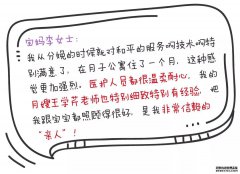 宝妈李女士：
我从分娩的时候就对和平的服务啊技术啊特
别满意了，在月子公寓住了一个月，这种感
觉更加强烈。医护人员都很温柔耐心，我的
月嫂王学芹老师也特别细致特别有经验，把
我跟宝宝都照顾得很好，是我非常信赖的
“亲人”！